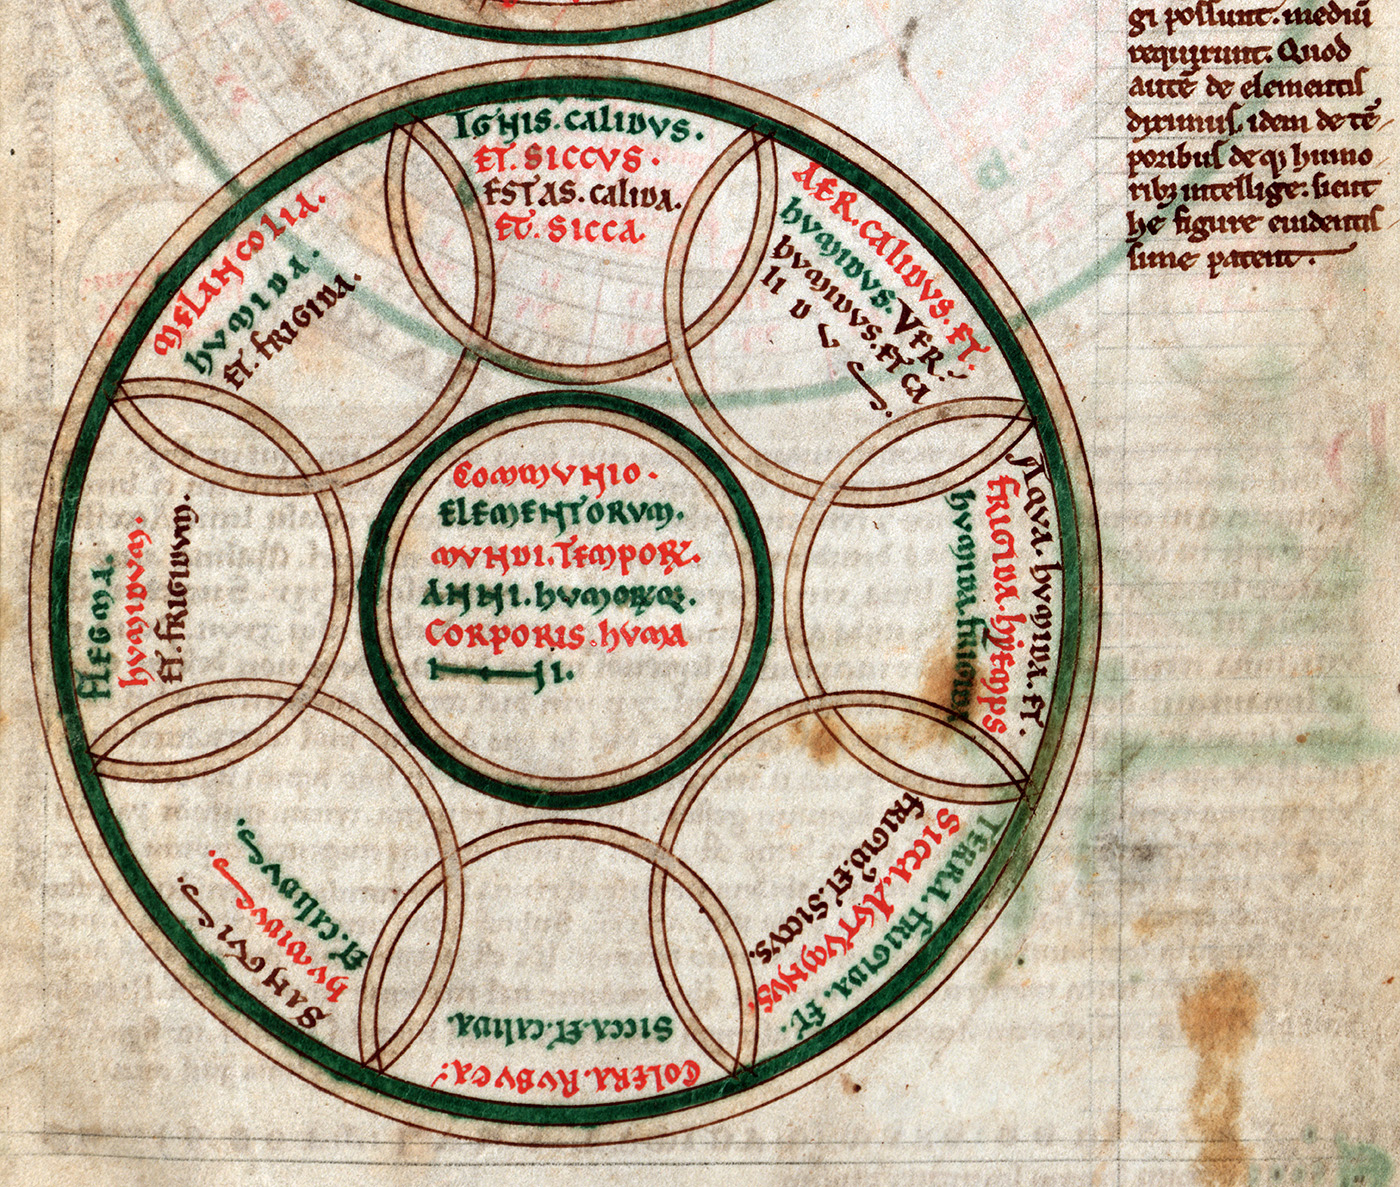 gi possunt. mediū
requirunt. Quod
autē de elementis
diximus. idem de tē
poribus deqꝫ humo
ribꝫ intellige: sicut
he figure euidentis
sime patent.
IGNIS. CALIDVS.
ET. SICCVS.
ESTAS. CALIDA.
ET. SICCA.
AER. CALIDVS. ET.
HVMIDVS. VER.
HVMIDVS. ET CA
LIDVS.
AQVA. HVMIDA. ET.
FRIGIDA. HYEMPS
HVMIDA. FRIGIDA
TERRA. FRIGIDA. ET.
SICCA. AVTVMNVS.
FRIGID'. ET. SICCVS.
COLERA. RVBVEA.
SICCA. ET. CALIDA.
SANGVIS.
HVMIDVS.
ET. CALIDVS.
FLEGMA.
HVMIDVM.
ET. FRIGIDVM.
MELANCOLIA.
HVMIDA.
ET. FRIGIDA.
COMMVNIO.
ELEMENTORVM.
MVNDI. TEMPORꝜ.
ANNI. HVMORꝜQꝫ.
CORPORIS. HVMA
NI.